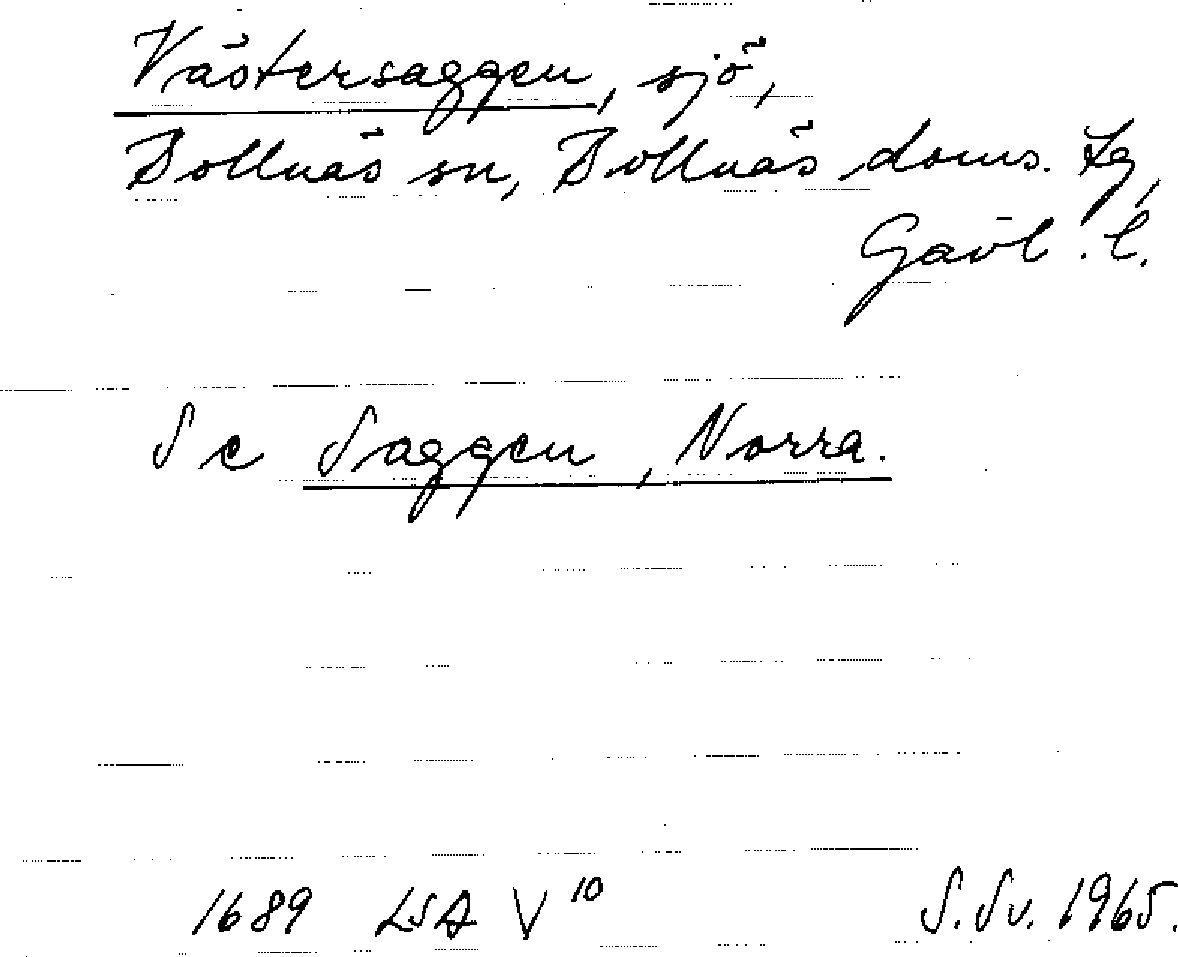 Västersaggen, sjö,
Bollnäs sn, Bollnäs doms. tg,
Gävl. l.
Se Saggen, Norra.
1689 LSA V¹⁰ S.Sv. 1965.